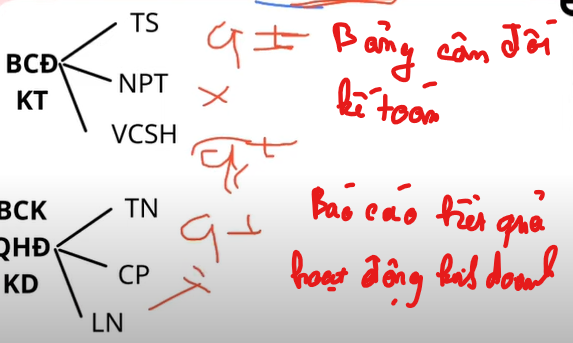 TS
BCĐ
KT
NPT
VCSH
Bảng cân đối
kế toán
BCK
QHĐ
KD
TN
CP
LN
Báo cáo kết quả
hoạt động kinh doanh